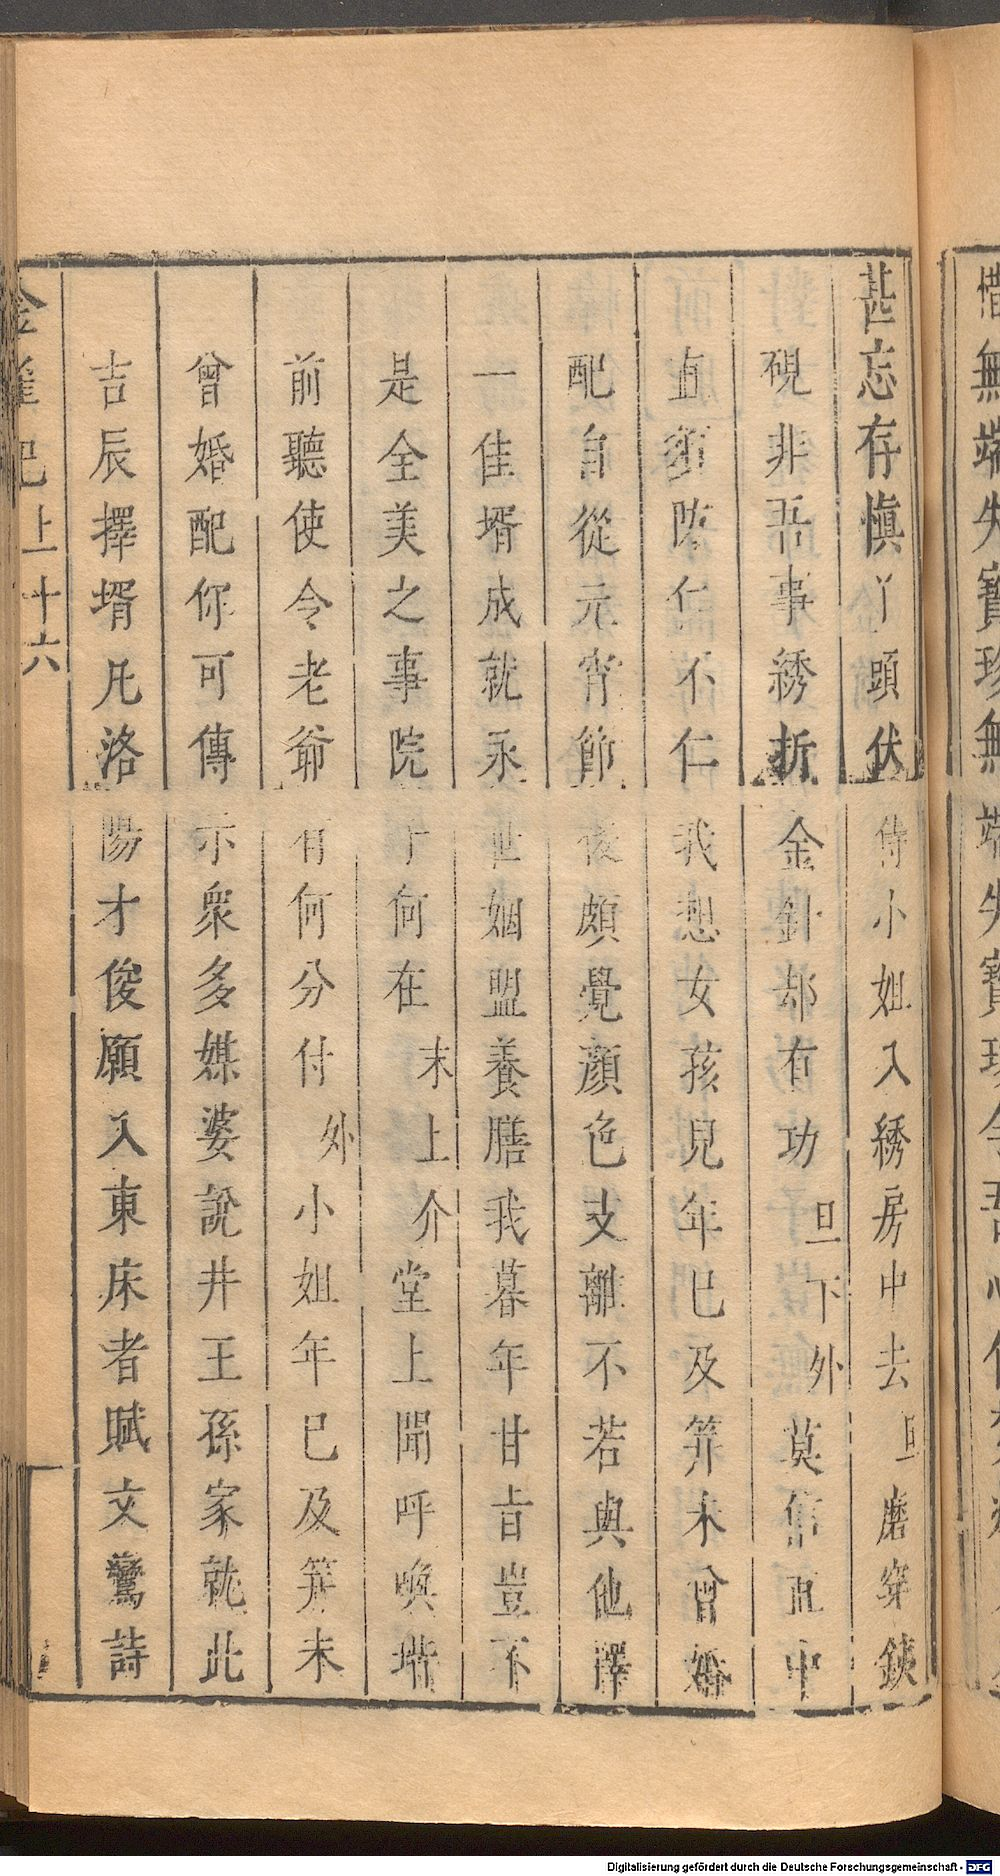 甚忘存愼丫頭伏侍小姐入綉房中去旦磨穿鉄
硯非吾事綉折金針却有功旦下外莫信直中
直須防仁不仁我想女孩兒年已及笄未曾婚
配自從元宵節後頗覺顏色支離不若與他擇
一佳壻成就永世姻盟養膳我暮年甘旨豈不
是全美之事院子何在末上介堂上聞呼喚堦
前聽使令老爺有何分付外小姐年已及笄未
曾婚配你可傳示衆多媒婆說井王孫家就此
吉辰擇壻凡洛陽才俊願入東床者賦文驚詩
金雀記上十六
惜無端失寶珍無端失寶珍
Digitalisierung gefördert durch die Deutsche Forschungsgemeinschaft - DFG